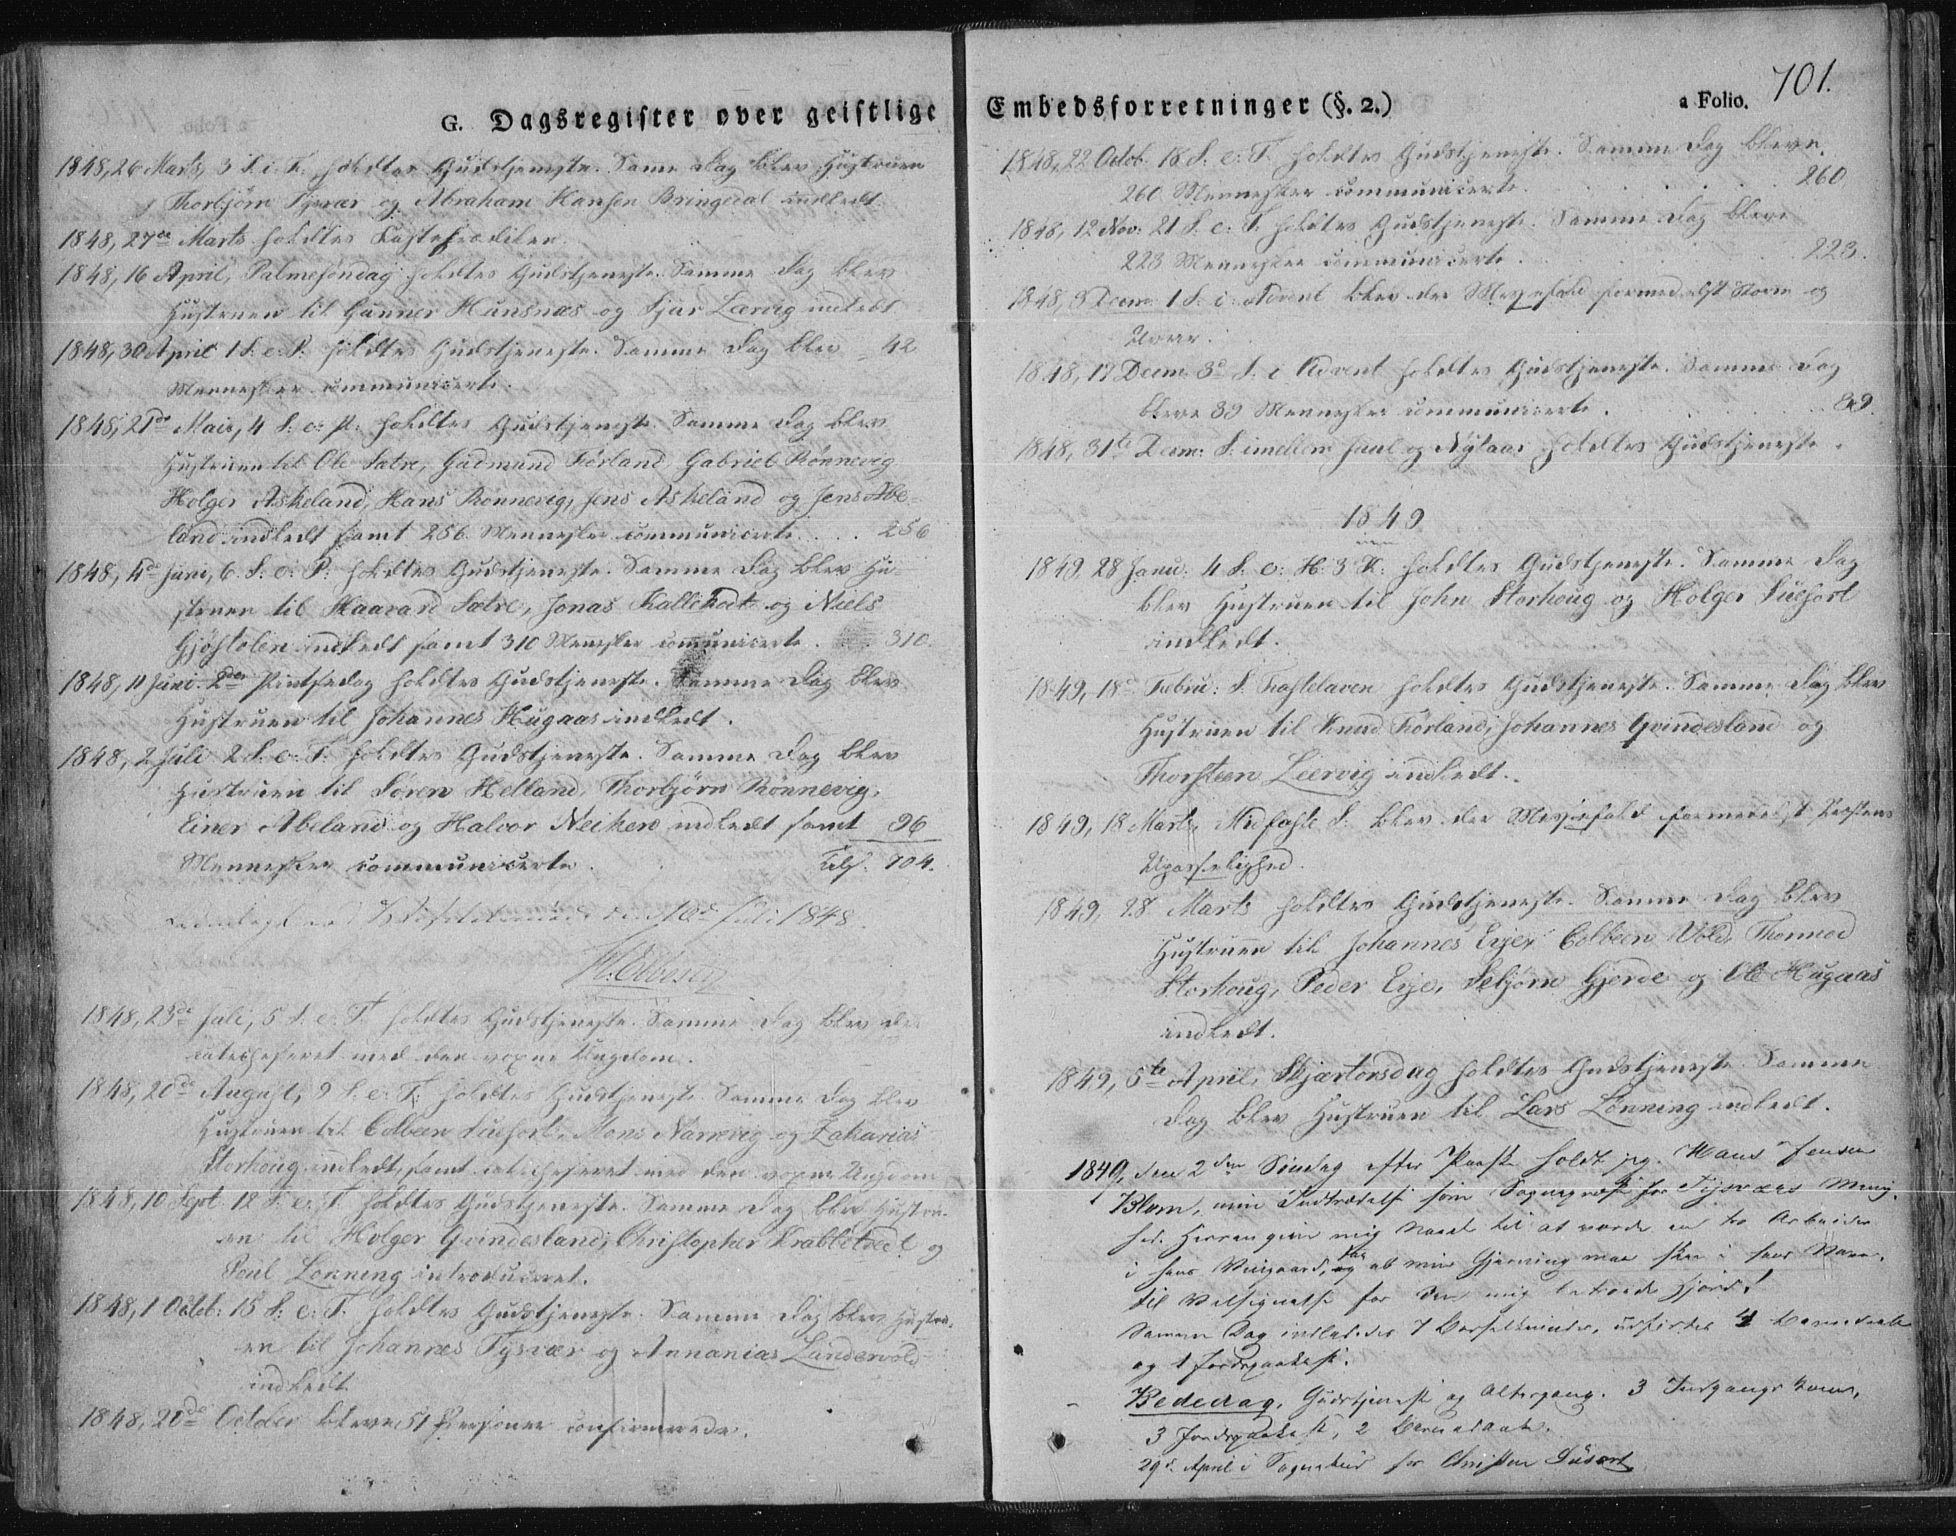 G. Dagsregister over geistlige
1848, 26 Marts, 3 S. i F. holdtes Gudstjeneste. Samme Dag blev Hustruen
Thorbjørn Tysvær og Abraham Hansen Bringedal indledt.
1848, 27de Marts holdtes Fasteprædiken.
1848, 16 April, Palmesøndag holdtes Gudstjeneste. Samme Dag blev
Hustruen til Gunner Hunsnæs og Sjur Lærvig indledt
1848, 30 April 1 S. e. P. holdtes Gudstjeneste. Samme Dag blev 42
Mennesker communicerte.
1848, 21de Mai, 4 S. e. P. holdtes Gudstjeneste. Samme Dag blev
Hustruen til Ole Sætre, Gudmund Førland, Gabriel Rønnevig
Holger Askeland, Hans Rønnevig, Jens Askeland og Jens Abe-
land indledt samt 256 Mennesker communicerte . . . 256
1848, 4de Juni, 6. S. e. P. holdtes Gudstjeneste. Samme Dag blev Hu-
struen til Haavard Sætre, Jonas Kallekodt og Niels
indledt samt 310 Mennesker communicerte . . 310.
1848, 11 Juni. 2den Pintsedag holdtes Gudstjeneste. Samme Dag blev
Hustruen til Johannes Hugaas indledt.
1848, 2 Juli 2 S. e. T. holdtes Gudstjeneste. Samme Dag blev
Hustruen til Søren Helland, Thorbjørn Rønnevig,
Einer Abeland og Halvor Neiken indledt samt 96
Mennesker communicerte. Tils. 704.
Juli 1848.
1848, 23de Juli, 5 S. e. T. holdtes Gudstjeneste. Samme Dag blev der
catechiseret med den voxne Ungdom.
1848, 20de August, 9 S. e. T. holdtes Gudstjeneste. Samme Dag blev
Hustruen til Colbeen Suefort, Mons Narrevig og Zakarias
Storhoug indledt, samt catechiseret med den voxne Ungdom
1848, 10 Sept. 12 S. e. T. holdtes Gudstjeneste. Samme Dag blev Hustru-
en til Holger Qvindesland, Christopher Krabbetvedt og
Poul Lønning introduceret.
1848, 1 Octob: 15 S. e. T. holdtes Gudstjeneste. Samme Dag blev Hustru-
en til Johannes Tysvær og Annanias Lundervold
indledt
1848, October bleve 51 Personer confirmerede.
Embedsforretninger (§. 2.)
a Folio. 701.
1848, 22 Octob. 18 S. e. T. holdtes Gudstjeneste. Samme Dag bleve
260 Mennesker communicerte. . . . 260.
1848, 12 Nov: 21 S. e. T. holdtes Gudstjeneste. Samme Dag bleve
223 Mennesker communicerte . . . 223.
1848, 3 Decm: 1 S. i Advent blev der Messefald formedelst Storm og
1848, 17 Decm. 3d S. i Advent holdtes Gudstjeneste. Samme Dag
bleve 39 Mennesker communicerte . . .
1848, 31te Decm: S. imellem Juul og Nytaar holdtes Gudstjeneste.
1849
1849, 28 Janu: 4 S. e. H. 3 K. holdtes Gudstjeneste. Samme Dag
blev Hustruen til John Storhoug og Holger Suefort
indledt.
1849, 18 Febru: S. Fastelaven holdtes Gudstjeneste. Samme Dag blev
Hustruen til Knud Førland, Johannes Qvindesland og
Thorsteen Leervig indledt.
1849, 18 Marts, Midfaste S. blev der Messefald formedelst Præstens
Upasselighed.
1849, 28 Marts holdtes Gudstjeneste. Samme Dag blev
Hustruen til Johannes Erjer Colbeen Vold, Thormod
Storhoug, Peder Erje, Sebjørn Gjerde og Ole Hugaas
indledt.
1849, 5te April, Skjærtorsdag holdtes Gudstjeneste. Samme
Dag blev Hustruen til Lars Lønning indledt.
1849, den 2den Søndag efter Paaske holdt jeg Hans Jensen
Blom, min Indtrædelse som Sognepræst for Tysværs Menig-
hed. Herren give mig Naade til at vorde en tro Arbeider
i hans Viingaard, og at min Gjerning maa skee i hans Navn,
til Velsignelse for den mig betroede Hjord!
Samme Dag indlededes 7 Barselkvinder, udførtes 4 Barnedaab
og 1 Jordpaakast.
Bededag, Gudstjeneste og Altergang. 3 Indgangskoner,
3 Jordpaakast, 2 Barnedaab.
29d. April i Sognebud for Suefort